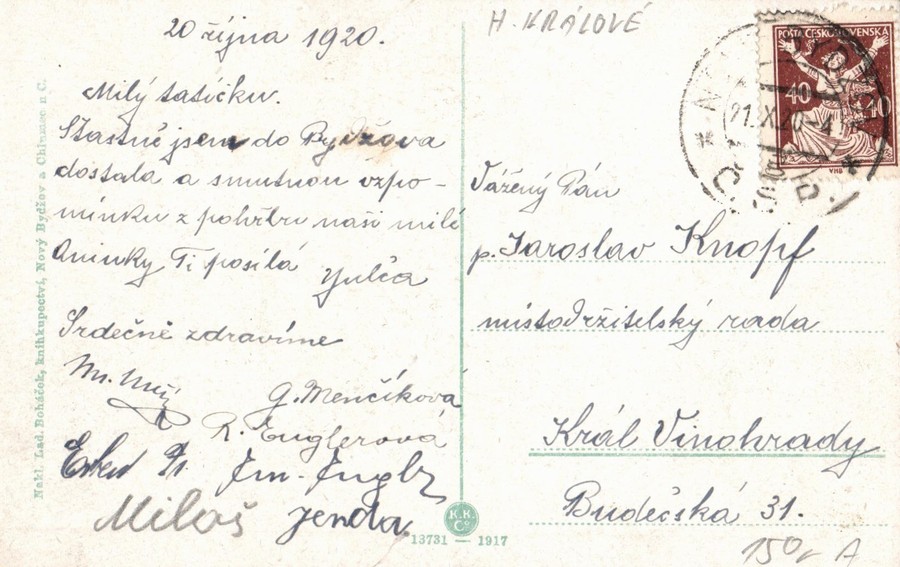 20 října 1920.
Milý tatíčku.
Šťastně jsem do Bydžova
dostala a smutnou vzpo-
mínku z pohřbu naší milé
Aninky Ti posílá
Julča
Srdečně zdravíme
G. Menčíková
R. Englerová
Miloš Jenda
H. KRÁLOVÉ
POŠTA ČESKOSLOVENSKÁ
40 40
VHB
Vážený Pán
p. Jaroslav Knopf
místodržitelský rada
Král Vinohrady
Budečská 31.
150,- A
K.K. Co.
13731 — 1917
Nakl. Lad. Boháček, knihkupectví, Nový Bydžov a Chlumec n C.